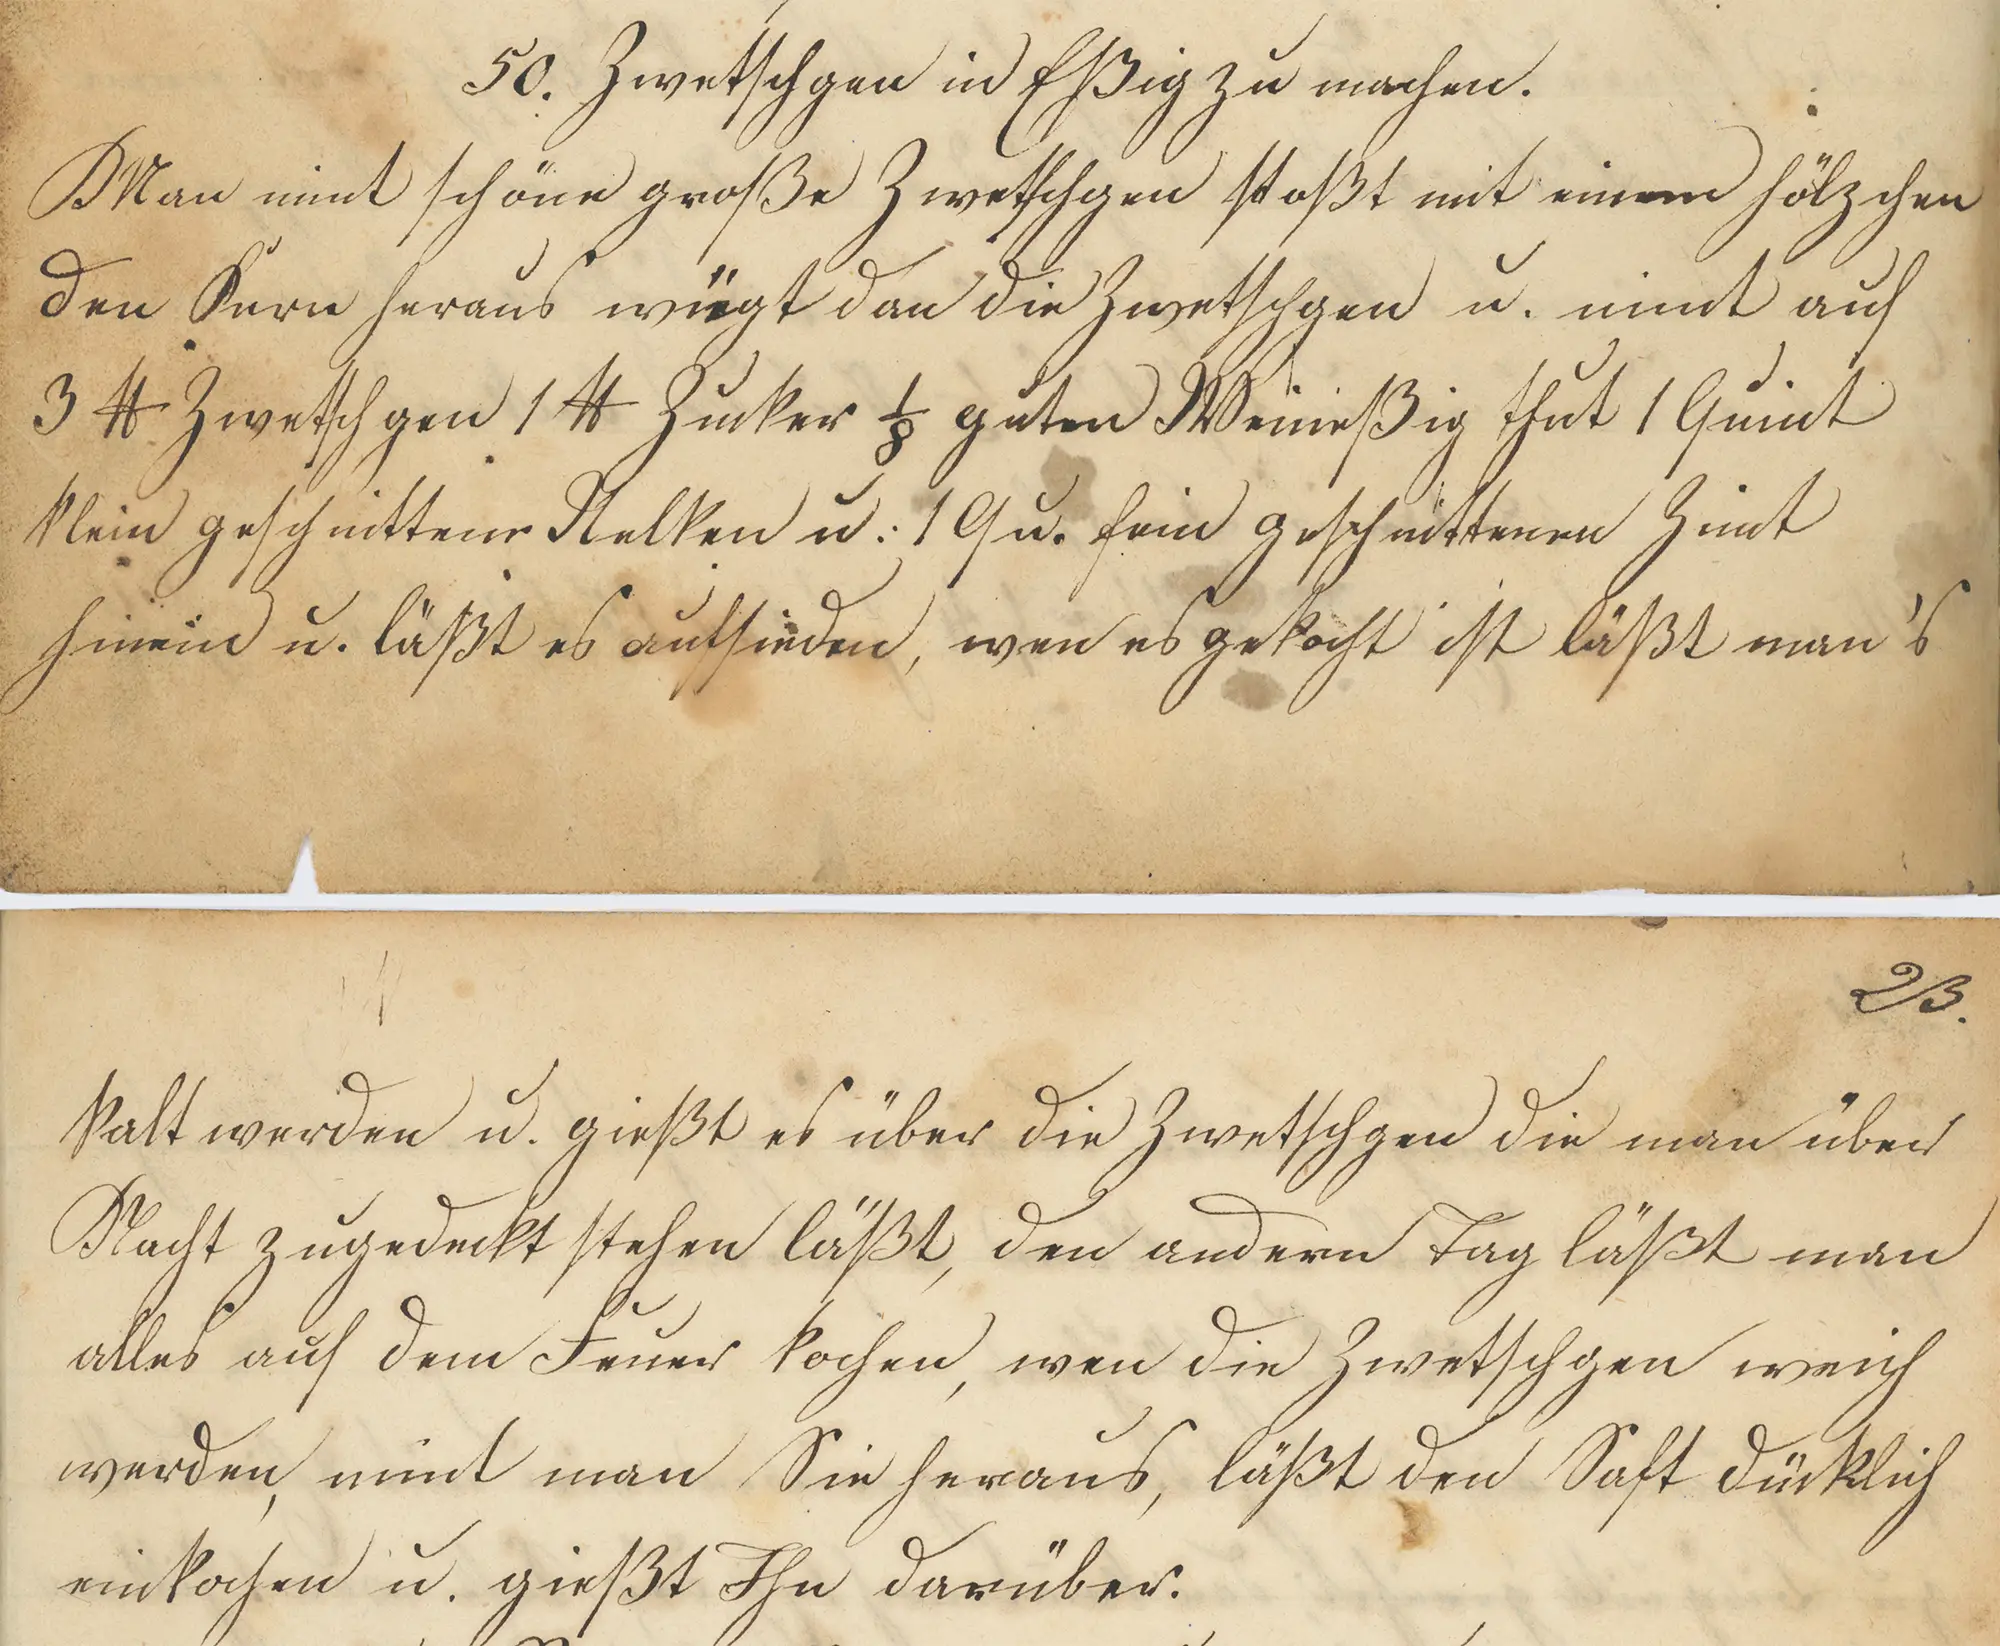 50. Zwetschgen in Eßig zu machen.
Man nimt schöne große Zwetschgen stoßt mit einem hölzchen
den Kern heraus wiegt dan die Zwetschgen u. nimt auf
3 ℔ Zwetschgen 1 ℔ Zucker ⅛ guten Weineßig thut 1 Quint
klein geschnittene Nelken u: 1 Qu. fein geschnittenen Zimt
hinein u. läßt es aufsieden, wen es gekocht ist läßt man's
23.
kalt werden u. gießt es über die Zwetschgen die man über
Nacht zugedeckt stehen läßt, den andern Tag läßt man
alles auf dem Feuer kochen, wen die Zwetschgen weich
werden, nimt man Sie heraus, läßt den Saft dücklich
einkochen u. gießt Ihn darüber.